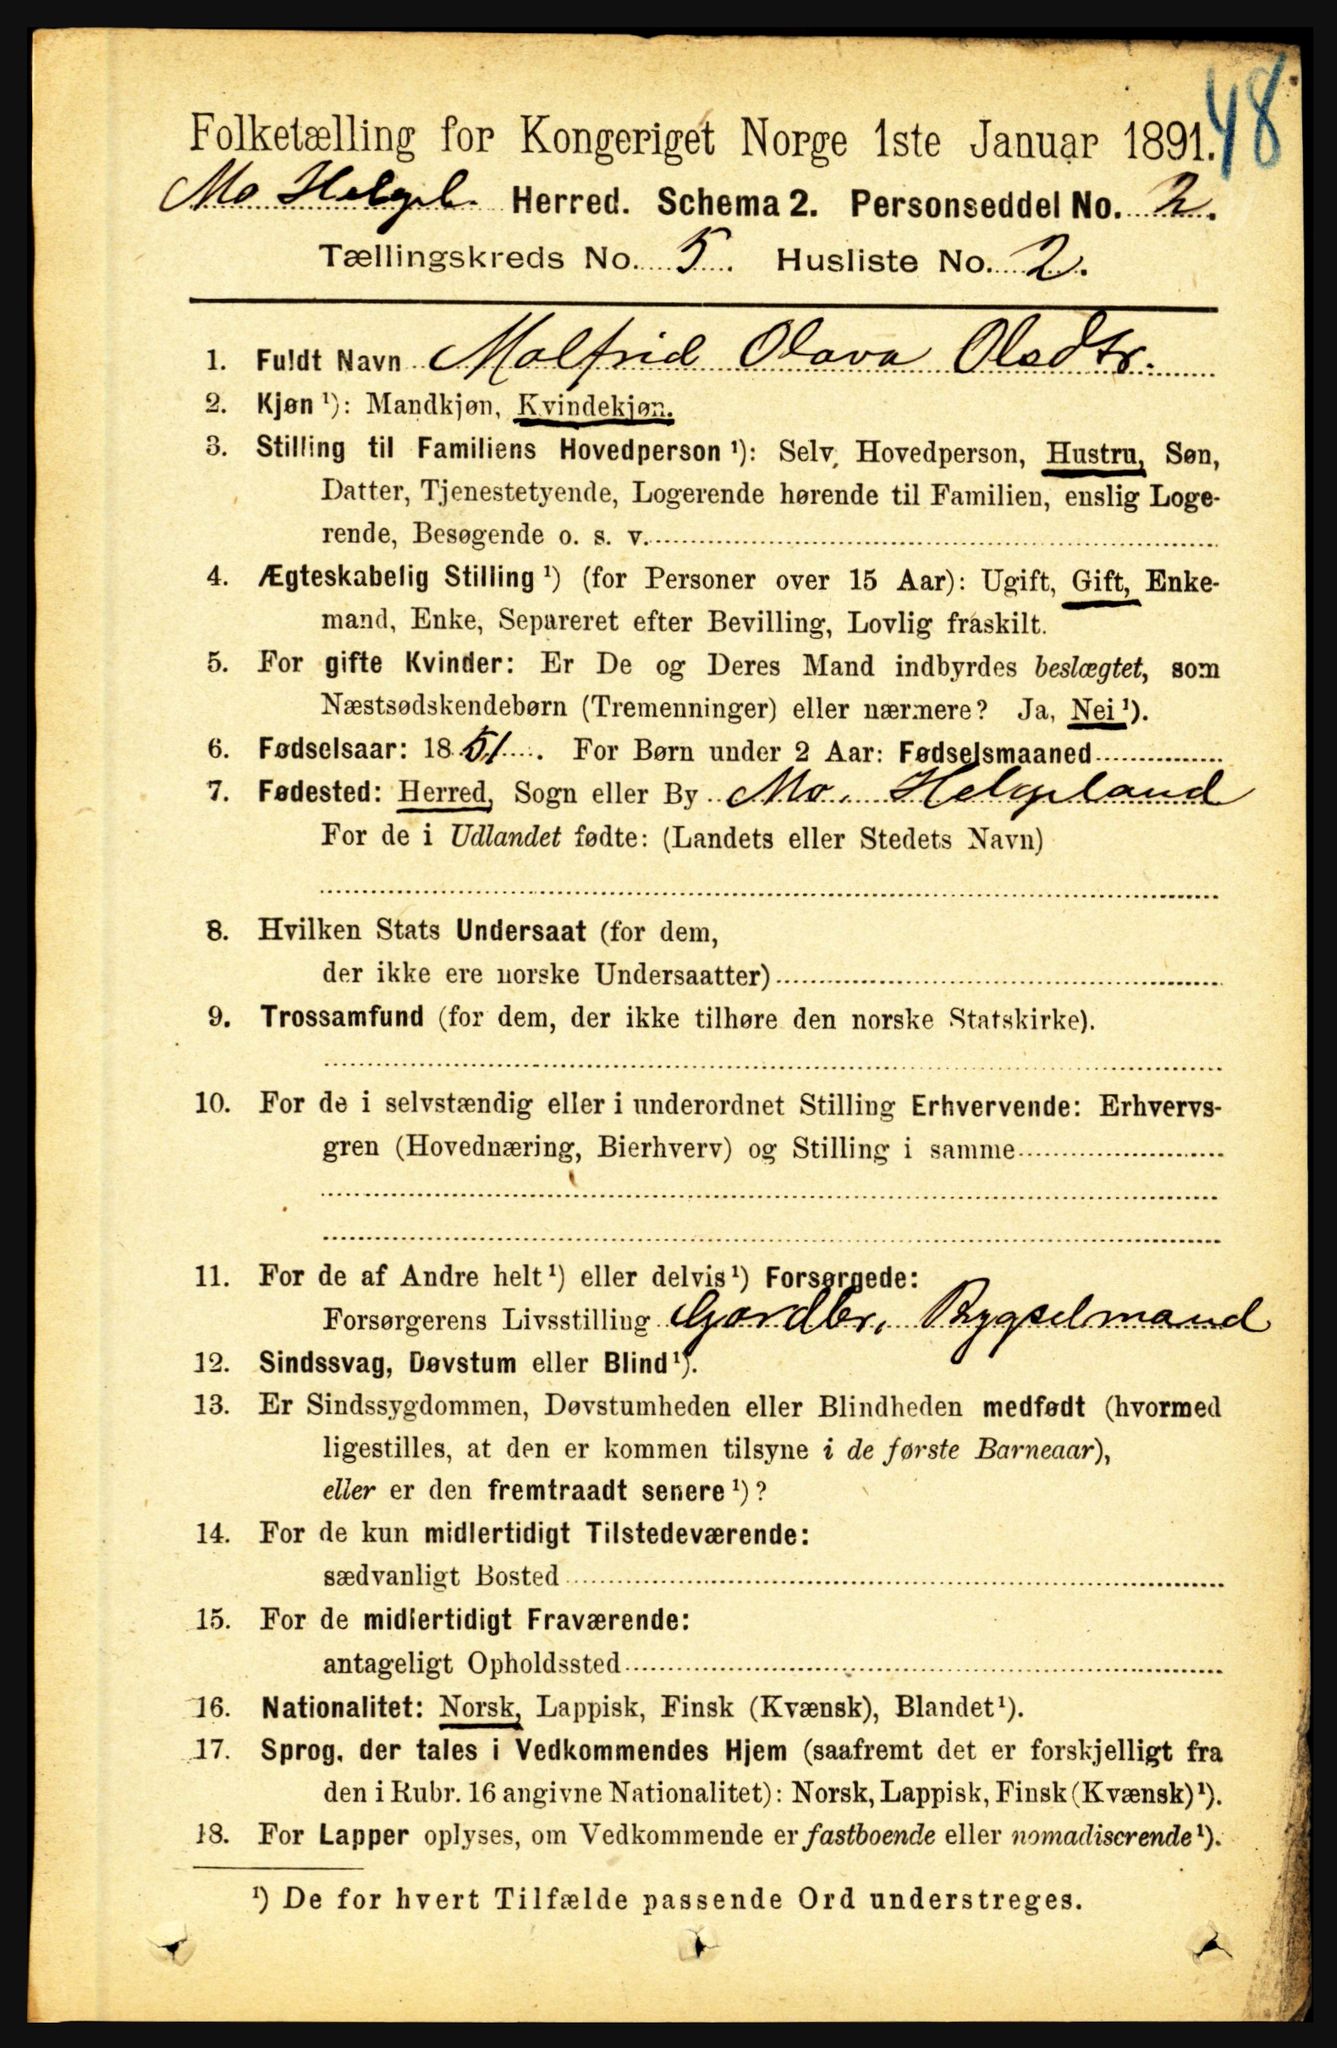 48
Folketælling for Kongeriget Norge 1ste Januar 1891.
Mo Helgel. Herred. Schema 2. Personseddel No. 2.
Tællingskreds No. 5. Husliste No. 2.
1. Fuldt Navn Malfrid Olava Olsdtr.
2. Kjøn ¹): Mandkjøn, Kvindekjøn.
3. Stilling til Familiens Hovedperson ¹): Selv, Hovedperson, Hustru, Søn,
Datter, Tjenestetyende, Logerende hørende til Familien, enslig Loge-
rende, Besøgende o. s. v.
4. Ægteskabelig Stilling ¹) (for Personer over 15 Aar): Ugift, Gift, Enke-
mand, Enke, Separeret efter Bevilling, Lovlig fraskilt.
5. For gifte Kvinder: Er De og Deres Mand indbyrdes beslægtet, som
Næstsødskendebørn (Tremenninger) eller nærmere? Ja, Nei ¹).
6. Fødselsaar: 1851. For Børn under 2 Aar: Fødselsmaaned
7. Fødested: Herred, Sogn eller By Mo. Helgeland
For de i Udlandet fødte: (Landets eller Stedets Navn)
8. Hvilken Stats Undersaat (for dem,
der ikke ere norske Undersaatter)
9. Trossamfund (for dem, der ikke tilhøre den norske Statskirke).
10. For de i selvstændig eller i underordnet Stilling Erhvervende: Erhvervs-
gren (Hovednæring, Bierhverv) og Stilling i samme
11. For de af Andre helt ¹) eller delvis ¹) Forsørgede:
Forsørgerens Livsstilling Gardbr. Bygselmand
12. Sindssvag, Døvstum eller Blind ¹).
13. Er Sindssygdommen, Døvstumheden eller Blindheden medfødt (hvormed
ligestilles, at den er kommen tilsyne i de første Barneaar),
eller er den fremtraadt senere ¹)?
14. For de kun midlertidigt Tilstedeværende:
sædvanligt Bosted
15. For de midlertidigt Fraværende:
antageligt Opholdssted
16. Nationalitet: Norsk, Lappisk, Finsk (Kvænsk), Blandet ¹).
17. Sprog, der tales i Vedkommendes Hjem (saafremt det er forskjelligt fra
den i Rubr. 16 angivne Nationalitet): Norsk, Lappisk, Finsk (Kvænsk) ¹).
18. For Lapper oplyses, om Vedkommende er fastboende eller nomadiserende ¹).
¹) De for hvert Tilfælde passende Ord understreges.